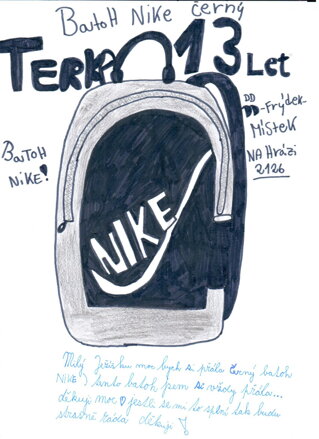 Batoh Nike černý
TERKA 13 Let
DD
DD-Frýdek-
Místek
NA Hrázi
2126
Batoh
NiKE!
NIKE
Milý Ježíšku moc bych si přála černý batoh
NIKE tento batoh jsem si vždy přála...
děkuju moc jestli se mi to splní tak budu
strašně ráda děkuju